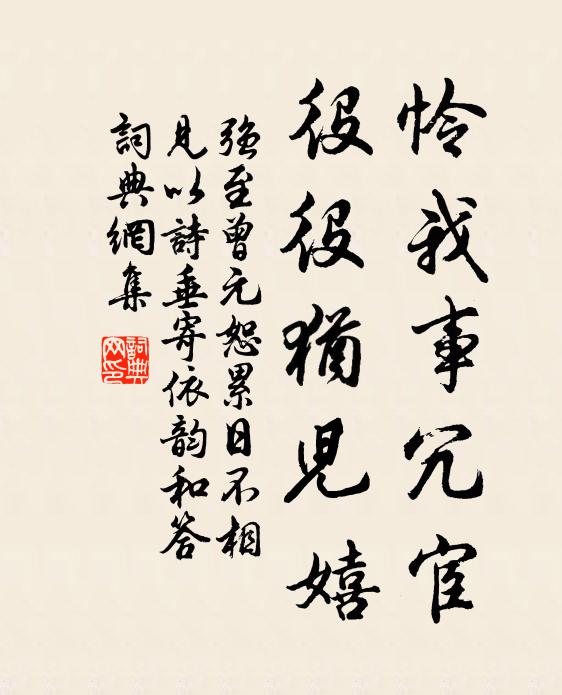 怜我事冗宦
役役猶兒嬉
強至曾元恕累日不相
見以詩垂寄依韵和答
詞典網集
詞典
网印